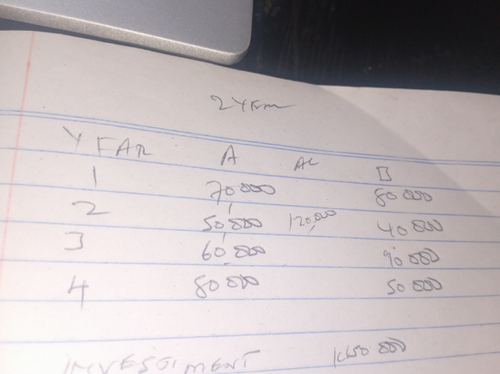 YEAR A AC B
1 70000 80000
2 50,000 120,000 40000
3 60,000 90000
4 80000 50000
INVESTMENT